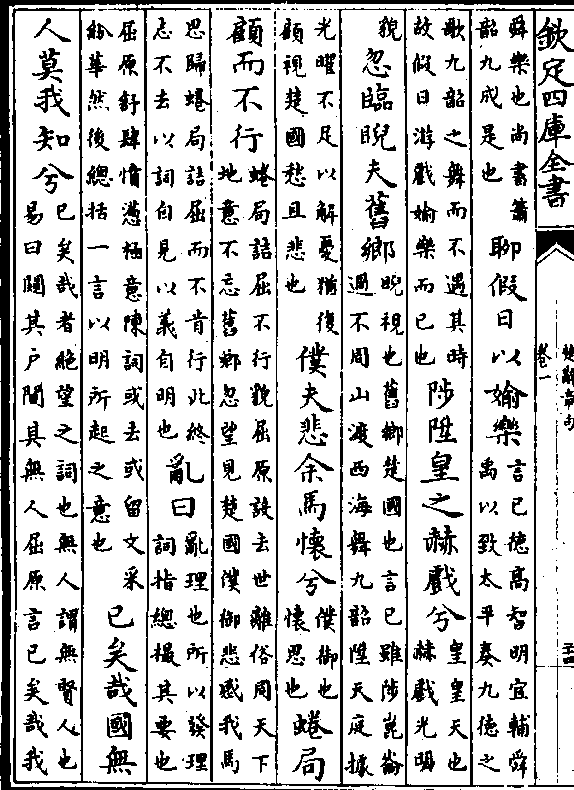 欽定四庫全書
楚辭章句
卷一
舜樂也尚書簫
韶九成是也
聊假日以媮樂
言已德髙智明宜輔舜
禹以致太平奏九德之
歌九韶之舞而不遇其時
故假日游戲媮樂而已也
陟陞皇之赫戲兮
皇皇天也
赫戲光明
貌
忽臨睨夫舊鄉
睨視也舊鄉楚國也言已雖陟崑崙
過不周山渡西海舞九韶陞天庭據
光曜不足以解憂猶復
顧視楚國愁且悲也
僕夫悲余馬懷兮
僕御也
懷思也
蜷局
顧而不行
蜷局詰屈不行貌屈原設去世離俗周天下
地意不忘舊鄉忽望見楚國僕御悲感我馬
思歸蜷局詰屈而不肯行此終
志不去以詞自見以義自明也
亂曰
亂理也所以發理
詞指總撮其要也
屈原舒肆憤懣極意陳詞或去或留文采
紛華然後總括一言以明所起之意也
已矣哉國無
人莫我知兮
已矣哉者絶望之詞也無人謂無賢人也
易曰闚其户闃其無人屈原言已矣哉我